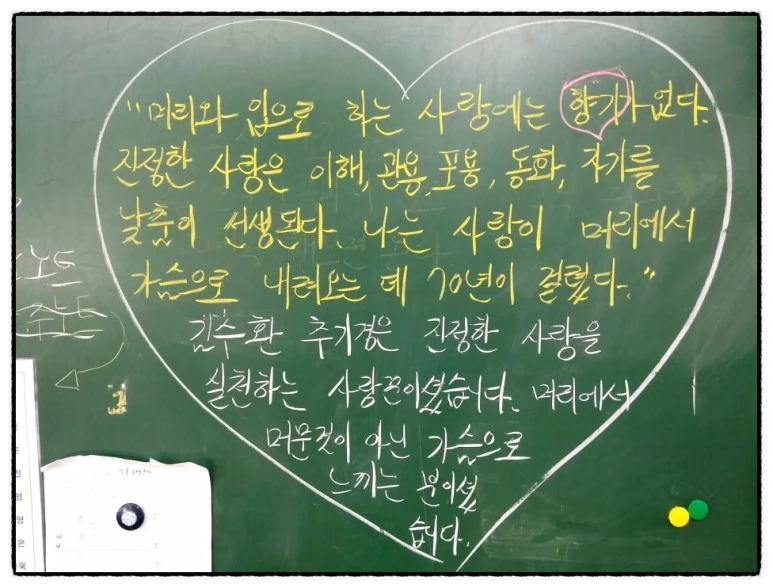 "머리와 입으로 하는 사랑에는 향기가 없다.
진정한 사랑은 이해, 관용, 포용, 동화, 자기를
낮춤이 선행된다. 나는 사랑이 머리에서
가슴으로 내려오는 데 70년이 걸렸다."
김수환 추기경은 진정한 사랑을
실천하는 사랑꾼이셨습니다. 머리에서
머문것이 아닌 가슴으로
느끼는 분이셨
습니다.